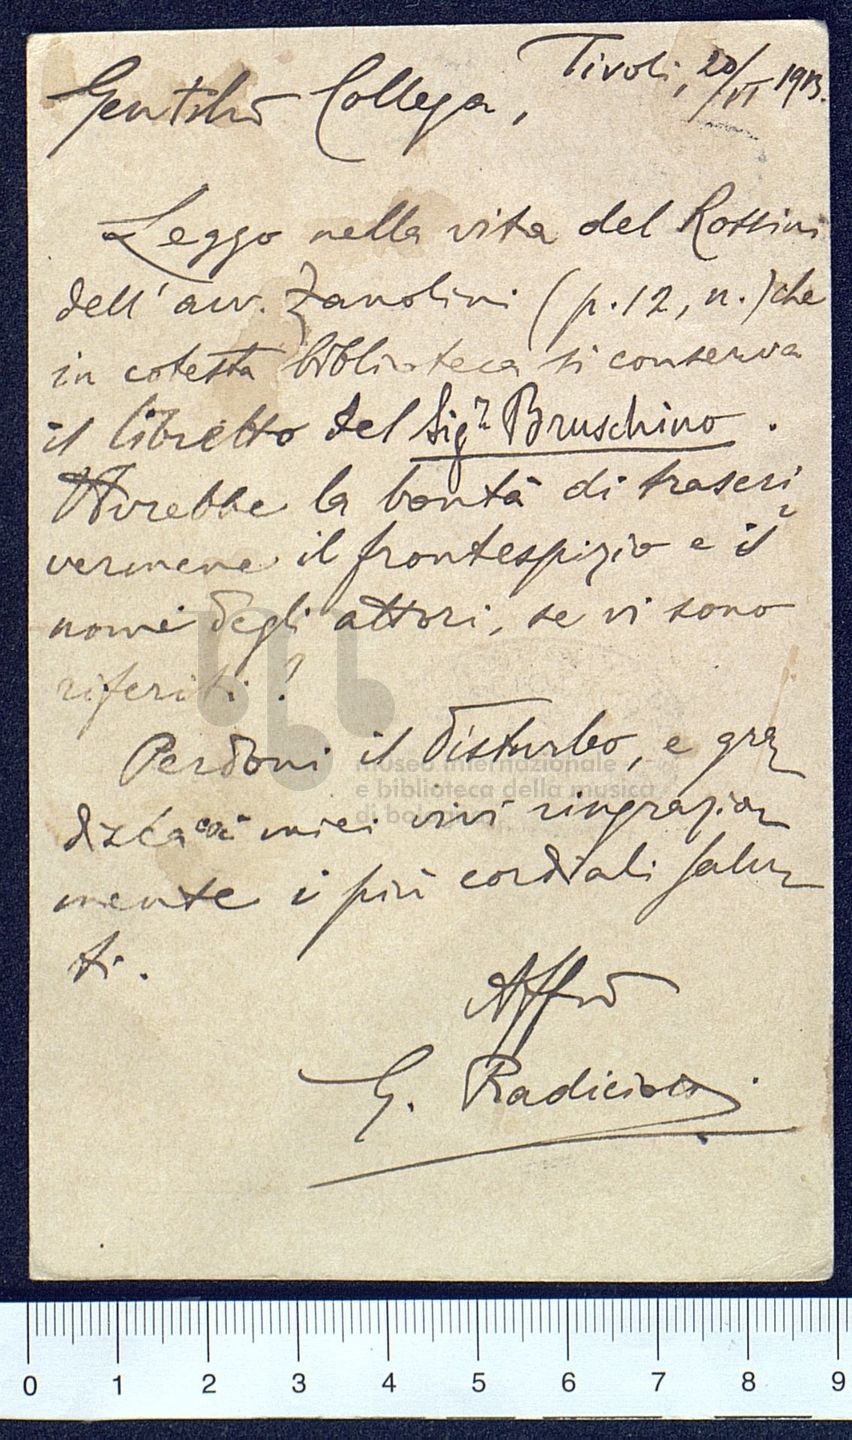 Tivoli, 20/VI 1913.
Gentilmo Collega,
Leggo nella vita del Rossini
dell' avv. Zanolini (p. 12, n.) che
in cotesta biblioteca si conserva
il libretto del Sigr Bruschino.
Avrebbe la bontà di trascri
vermene il frontespizio e i
nomi degli attori, se vi sono
riferiti?
Perdoni il disturbo, e gra
disca coi miei vivi ringrazia
mente i più cordiali salu
ti.
Affmo
G. Radiciotti
museo internazionale
e biblioteca della musica
di bologna
0 1 2 3 4 5 6 7 8 9